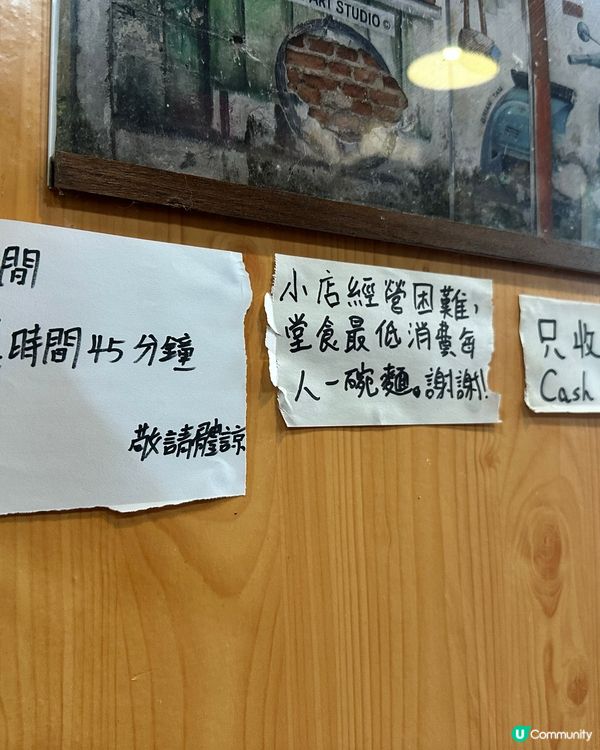 ART STUDIO ©
間
時間45分鐘
敬請體諒
小店經營困難,
堂食最低消費每
人一碗麵。謝謝!
只收
Cash
U Community